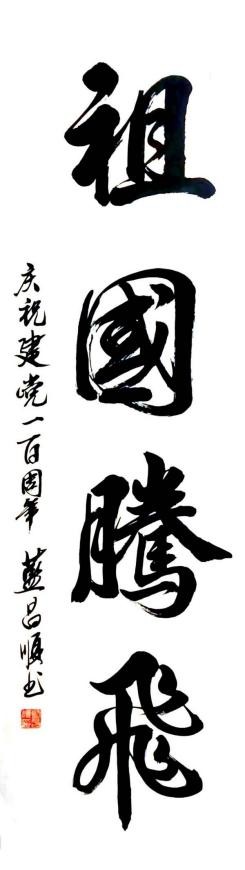 祖國騰飛
庆祝建党一百周年 蓝昌顺书